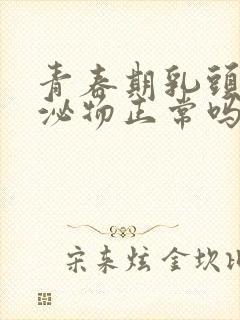 青春期乳頭
泌物正常吗
宋来炫 金坎比